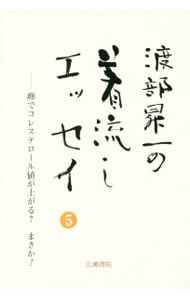 渡部昇一の
着流し
エッセイ
5
──酒でコレステロール値が上がる？　まさか！
広瀬書院